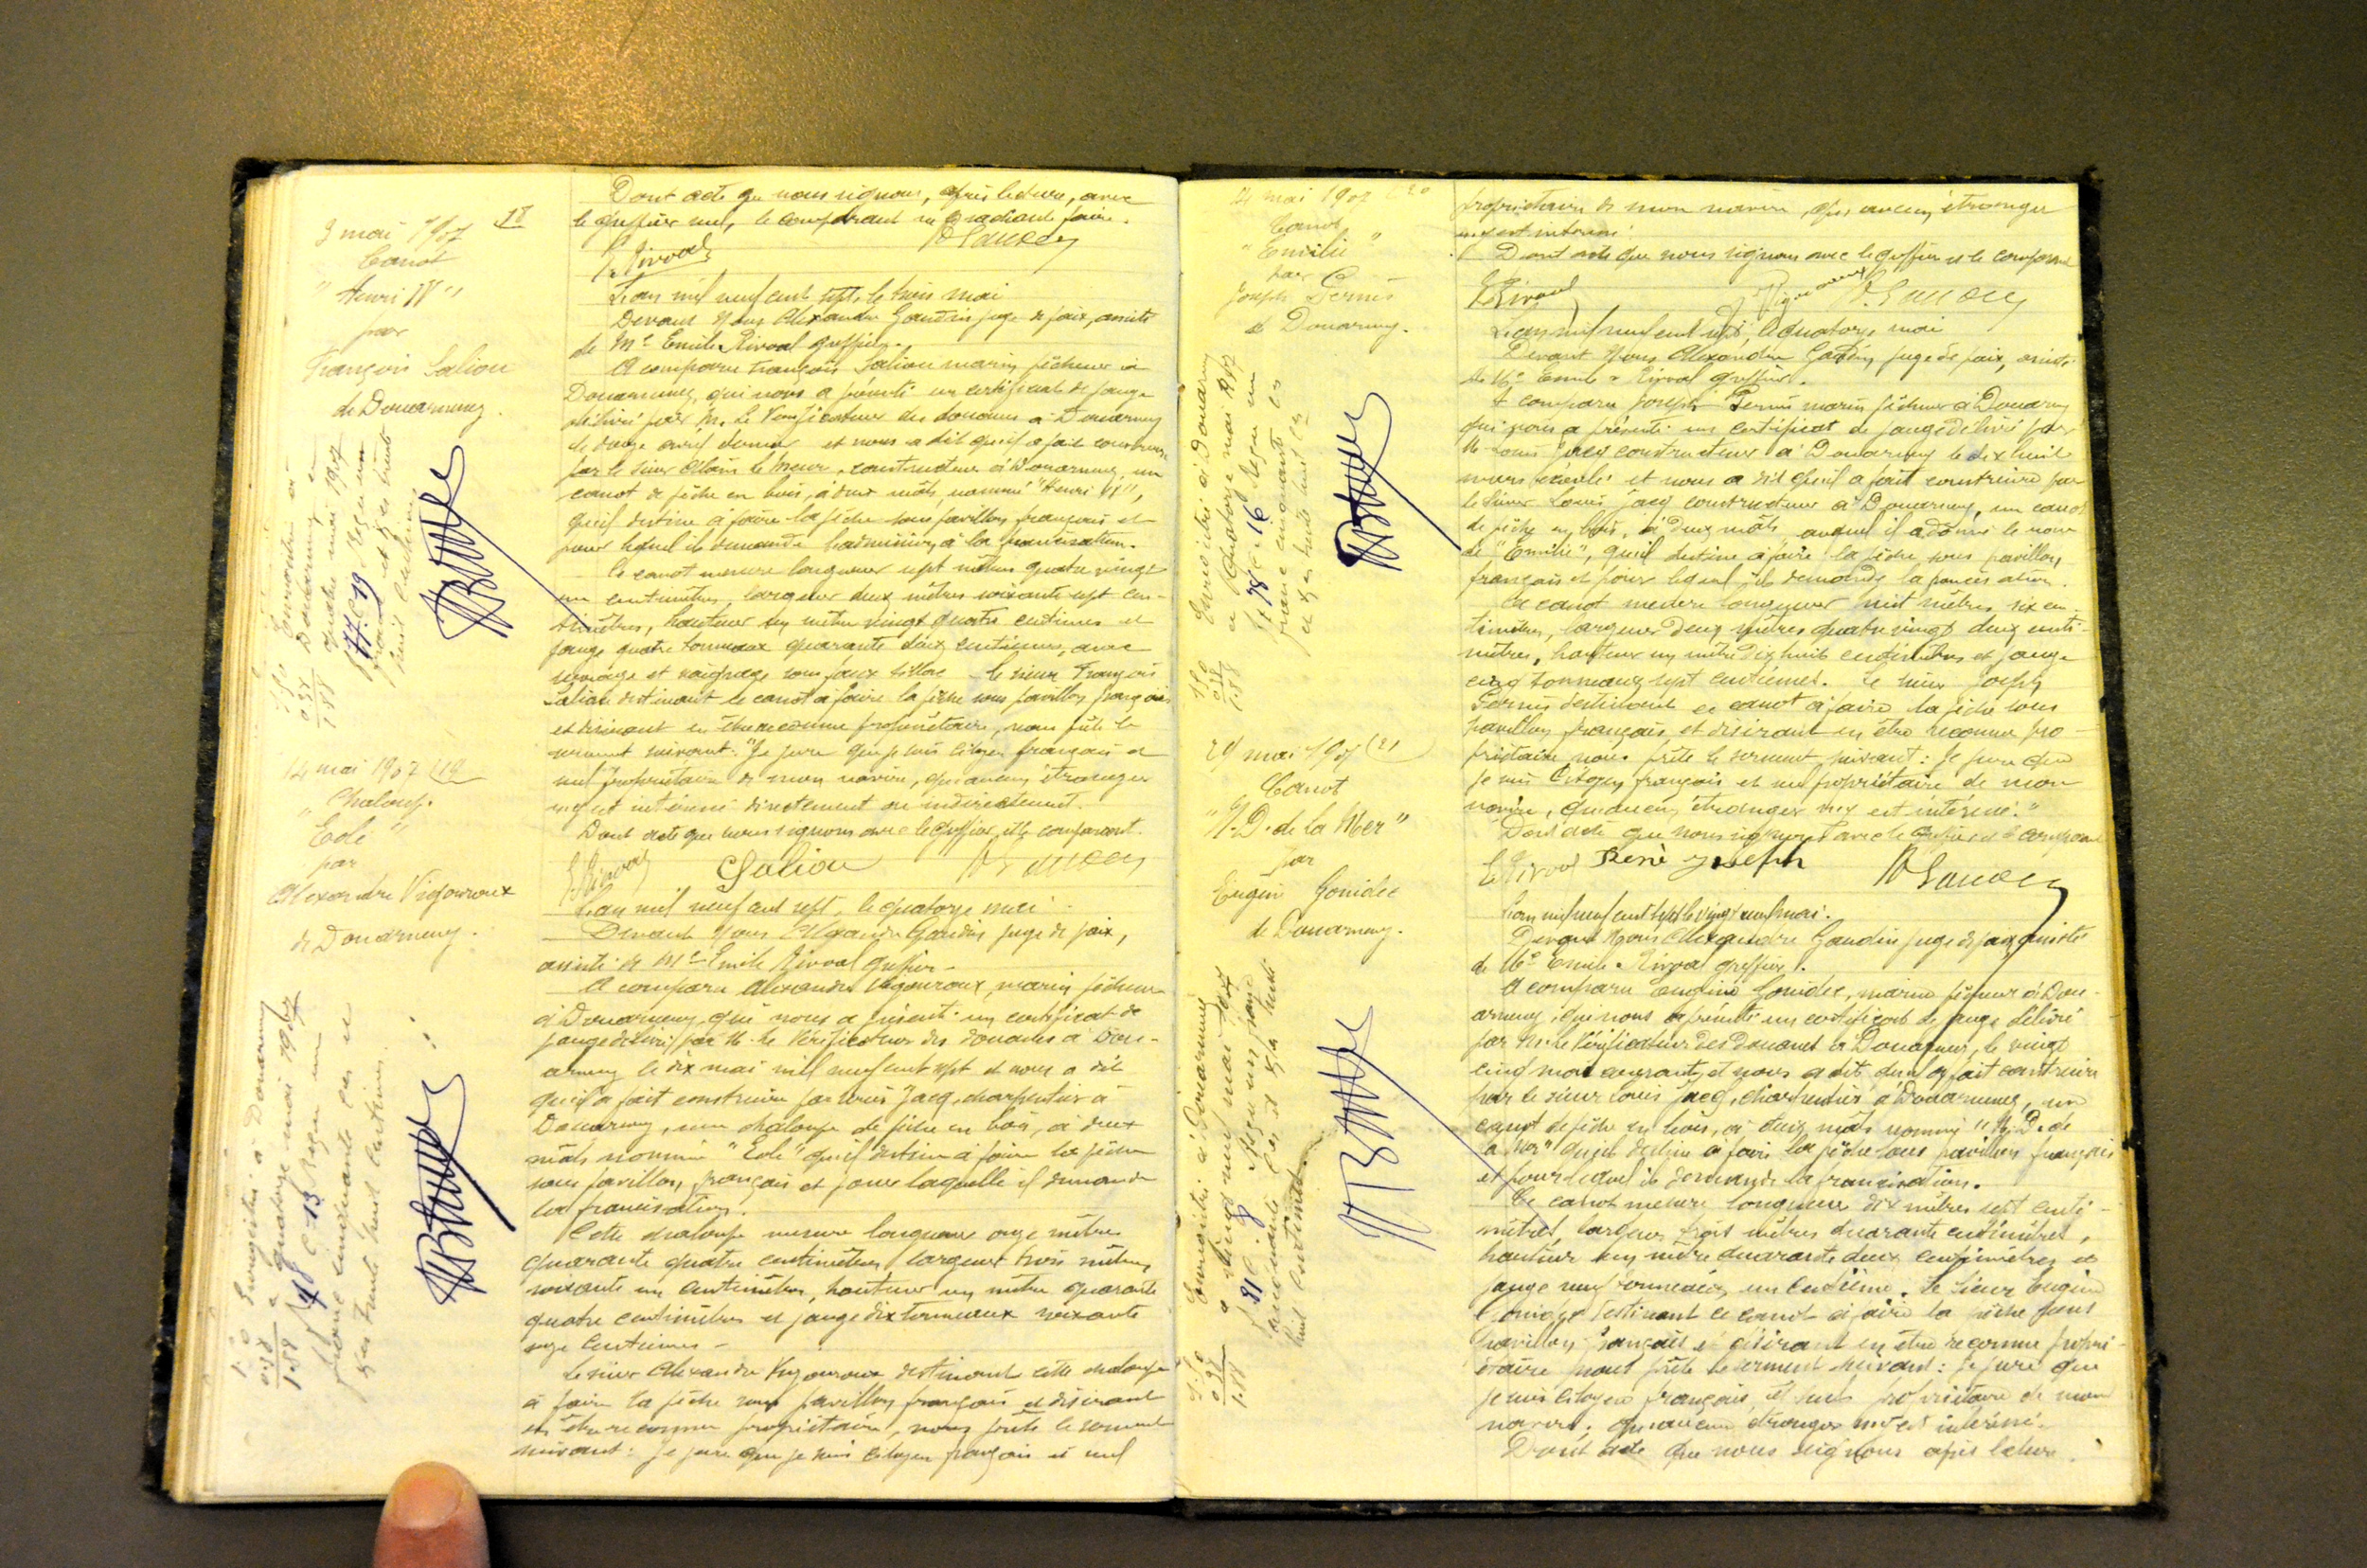 Dont acte que nous signons, après lecture, avec
le greffier seul, le comparant ne sachant faire.
E. Rivoal
3 mai 1907 18
Canot
"Henri IV"
par
François Saliou
de Douarnenez.
Enregistré à
Douarnenez
quatre mai 1907
f° 77 C 19 Reçu un
L'an mil neuf cent sept, le trois mai
Devant Nous Alexandre Gaudin juge de paix, assisté
de Me Emile Rivoal greffier.
A comparu François Saliou marin pêcheur à
Douarnenez, qui nous a présenté un certificat de jauge
délivré par M. Le Vérificateur des douanes à Douarnenez
le douze avril dernier et nous a dit qu'il a fait construire
par le sieur Alain le Meur, constructeur à Douarnenez, un
canot de pêche en bois, à deux mâts, nommé "Henri IV",
qu'il destine à faire la pêche sous pavillon français et
pour lequel il demande l'admission à la francisation.
Ce canot mesure longueur sept mètres quatre vingt
un centimètres, largeur deux mètres soixante sept cen-
timètres, hauteur un mètre vingt quatre centimes et
jauge quatre tonneaux quarante deux centièmes, avec
serrage et vaigrage sous faux tillac le sieur François
Saliou destinant le canot à faire la pêche sous pavillon français
et désirant en être reconnu propriétaire, nous prête le
serment suivant: "Je jure que je suis citoyen français et
seul propriétaire de mon navire, qu'aucun étranger
n'y est intéressé directement ou indirectement.
Dont acte que nous signons avec le greffier et le comparant.
E. Rivoal Saliou
14 mai 1907 19
Chaloupe
"Eole"
par
Alexandre Vigouroux
de Douarnenez.
Enregistré à Douarnenez
le quatorze mai 1907
f° 78 C 13 Reçu un
franc cinquante ces et
des trente huit centimes.
1.50
0.38
1.88
L'an mil neuf cent sept, le quatorze mai
Devant Nous Alexandre Gaudin juge de paix,
assisté de Me Emile Rivoal greffier
A comparu Alexandre Vigouroux, marin pêcheur
à Douarnenez, qui nous a présenté un certificat de
jauge délivré par M. le Vérificateur des douanes à Dou-
arnenez le dix mai mil neuf cent sept et nous a dit
qu'il a fait construire par Louis Jacq, charpentier à
Douarnenez, une chaloupe de pêche en bois, à deux
mâts nommée "Eole" qu'il destine à faire la pêche
sous pavillon français et pour laquelle il demande
la francisation.
Cette chaloupe mesure longueur onze mètres
quarante quatre centimètres, largeur trois mètres
soixante un centimètres, hauteur un mètre quarante
quatre centimètres et jauge dix tonneaux soixante
onze centièmes
Le sieur Alexandre Vigouroux destinant cette chaloupe
à faire la pêche sous pavillon français et désirant
en être reconnu propriétaire, nous prête le serment
suivant: Je jure que je suis citoyen français et seul
propriétaire de mon navire, qu'aucun étranger
n'y est intéressé
Dont acte que nous signons avec le greffier et le comparant
E Rivoal J Vigouroux
14 mai 1907 20
Canot
"Emilie"
par
Joseph Pernès
de Douarnenez.
Enregistré à Douarnenez
le quatorze mai 1907
f° 78 C 16 Reçu un
franc cinquante ces
et des trente huit ces
1.50
0.38
1.88
L'an mil neuf cent sept, le quatorze mai
Devant Nous Alexandre Gaudin juge de paix, assisté
de Me Emile Rivoal greffier.
A comparu Joseph Pernès marin pêcheur à Douarnenez
qui nous a présenté un certificat de jauge délivré par
M Louis Jacq constructeur à Douarnenez le dix huit
mars écoulé et nous a dit qu'il a fait construire par
le sieur Louis Jacq constructeur à Douarnenez, un canot
de pêche en bois, à deux mâts auquel il a donné le nom
de "Emilie", qu'il destine à faire la pêche sous pavillon
français et pour lequel il demande la francisation.
Ce canot mesure longueur huit mètres six cen
timètres, largeur deux mètres quatre vingt deux centi-
mètres, hauteur un mètre dix huit centimètres et jauge
cinq tonneaux sept centièmes. Le sieur Joseph
Pernès destinant ce canot à faire la pêche sous
pavillon français et désirant en être reconnu pro-
priétaire nous prête le serment suivant: Je jure que
je suis Citoyen français et seul propriétaire de mon
navire, qu'aucun étranger n'y est intéressé."
Dont acte que nous signons avec le greffier et le comparant
E Rivoal René Joseph
29 mai 1907 21
Canot
"N.D. de la Mer"
par
Eugène Gonidec
de Douarnenez.
Enregistré à Douarnenez
le vingt neuf mai 1907
1.50
0.38
1.88
L'an mil neuf cent sept le vingt neuf mai.
Devant Nous Alexandre Gaudin juge de paix assisté
de Me Emile Rivoal greffier.
A comparu Eugène Gonidec, marin pêcheur à Dou-
arnenez, qui nous a présenté un certificat de jauge délivré
par M. le Vérificateur des Douanes à Douarnenez, le vingt
cinq mai courant, et nous a dit qu'il a fait construire
par le sieur Louis Jacq, charpentier à Douarnenez, un
canot de pêche en bois, à deux mâts nommé "N.D. de
la Mer" qu'il destine à faire la pêche sous pavillon français
et pour lequel il demande la francisation.
Ce canot mesure longueur dix mètres sept centi-
mètres, largeur trois mètres quarante centimètres,
hauteur un mètre quarante deux centimètres et
jauge neuf tonneaux un centième. Le sieur Eugène
Gonidec destinant ce canot à faire la pêche sous
pavillon français et désirant en être reconnu propri-
étaire nous prête le serment suivant: je jure que
je suis citoyen français, et seul propriétaire de mon
navire, qu'aucun étranger n'y est intéressé.
Dont acte que nous signons après lecture